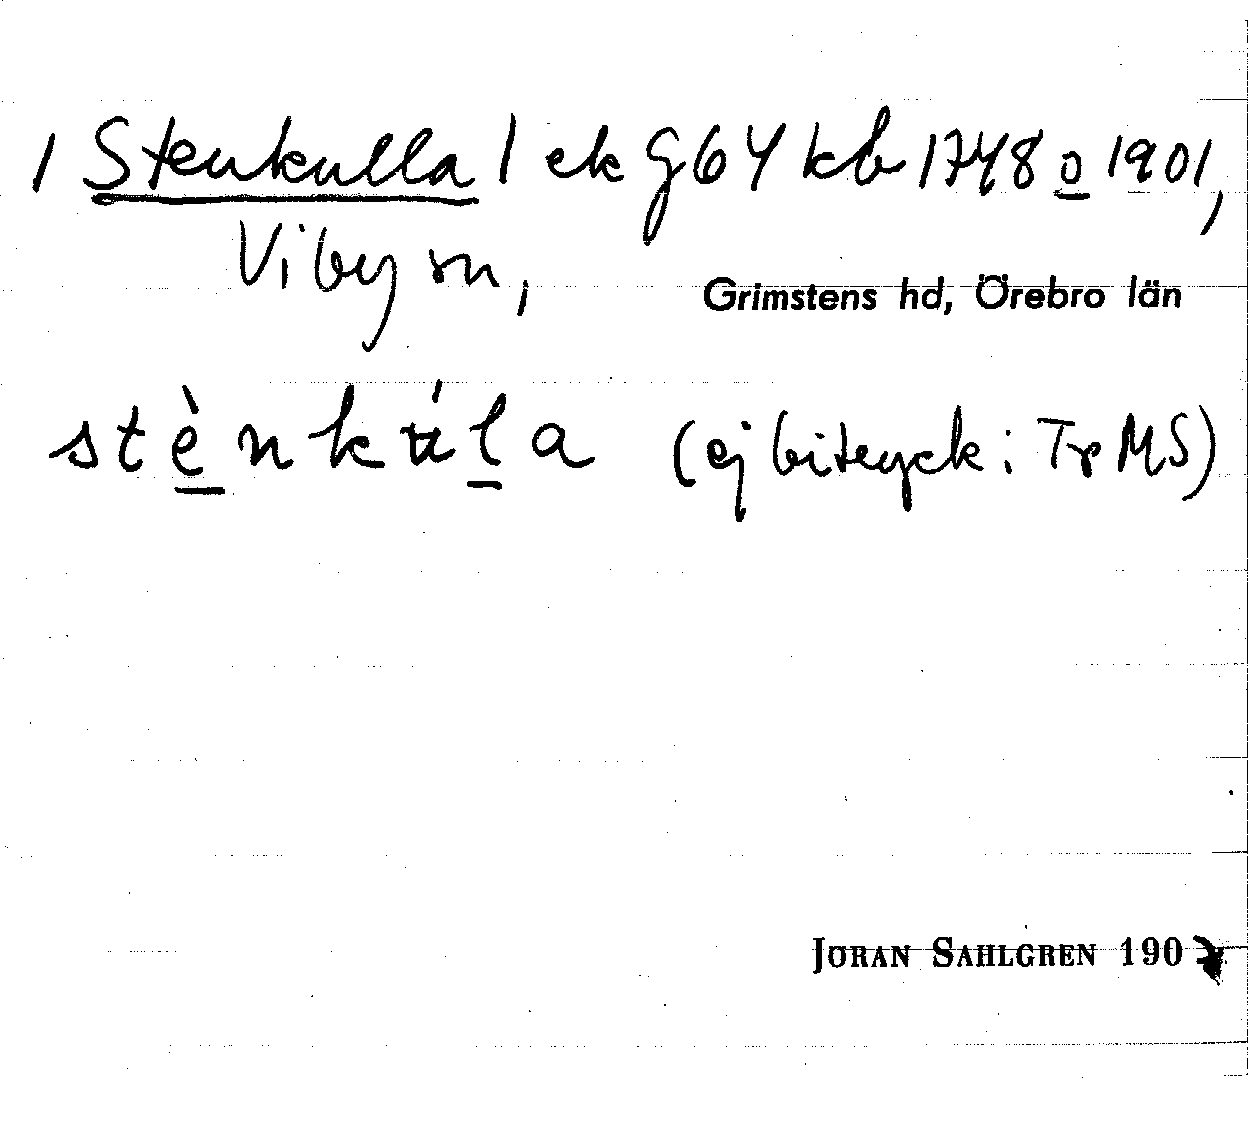 / Stenkulla / ek g 64 kb 1748 o 1901,
Viby sn,
Grimstens hd, Örebro län
stènkúla (ej bitryck i TrMS)
JÖRAN SAHLGREN 190